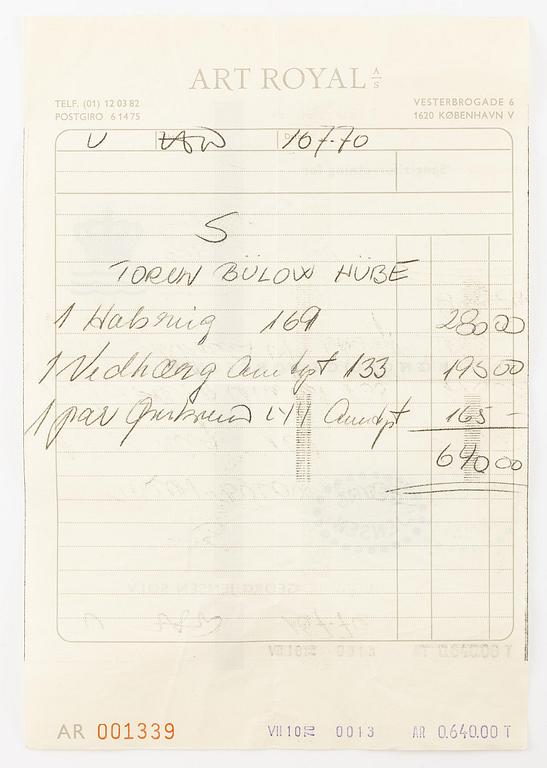 ART ROYAL A/S
TELF. (01) 12 03 82
POSTGIRO 6 14 75
VESTERBROGADE 6
1620 KØBENHAVN V
167-70
S
TORUN BÜLOW HÜBE
1 Halsring 169 280 00
1 Vedhæng Amtyst 133 195 00
1 par Ørskruer 141 Amtyst 165 -
640 00
GEORG JENSEN SØLV
AR 001339
VII 10 0013 AR 0.640.00 T